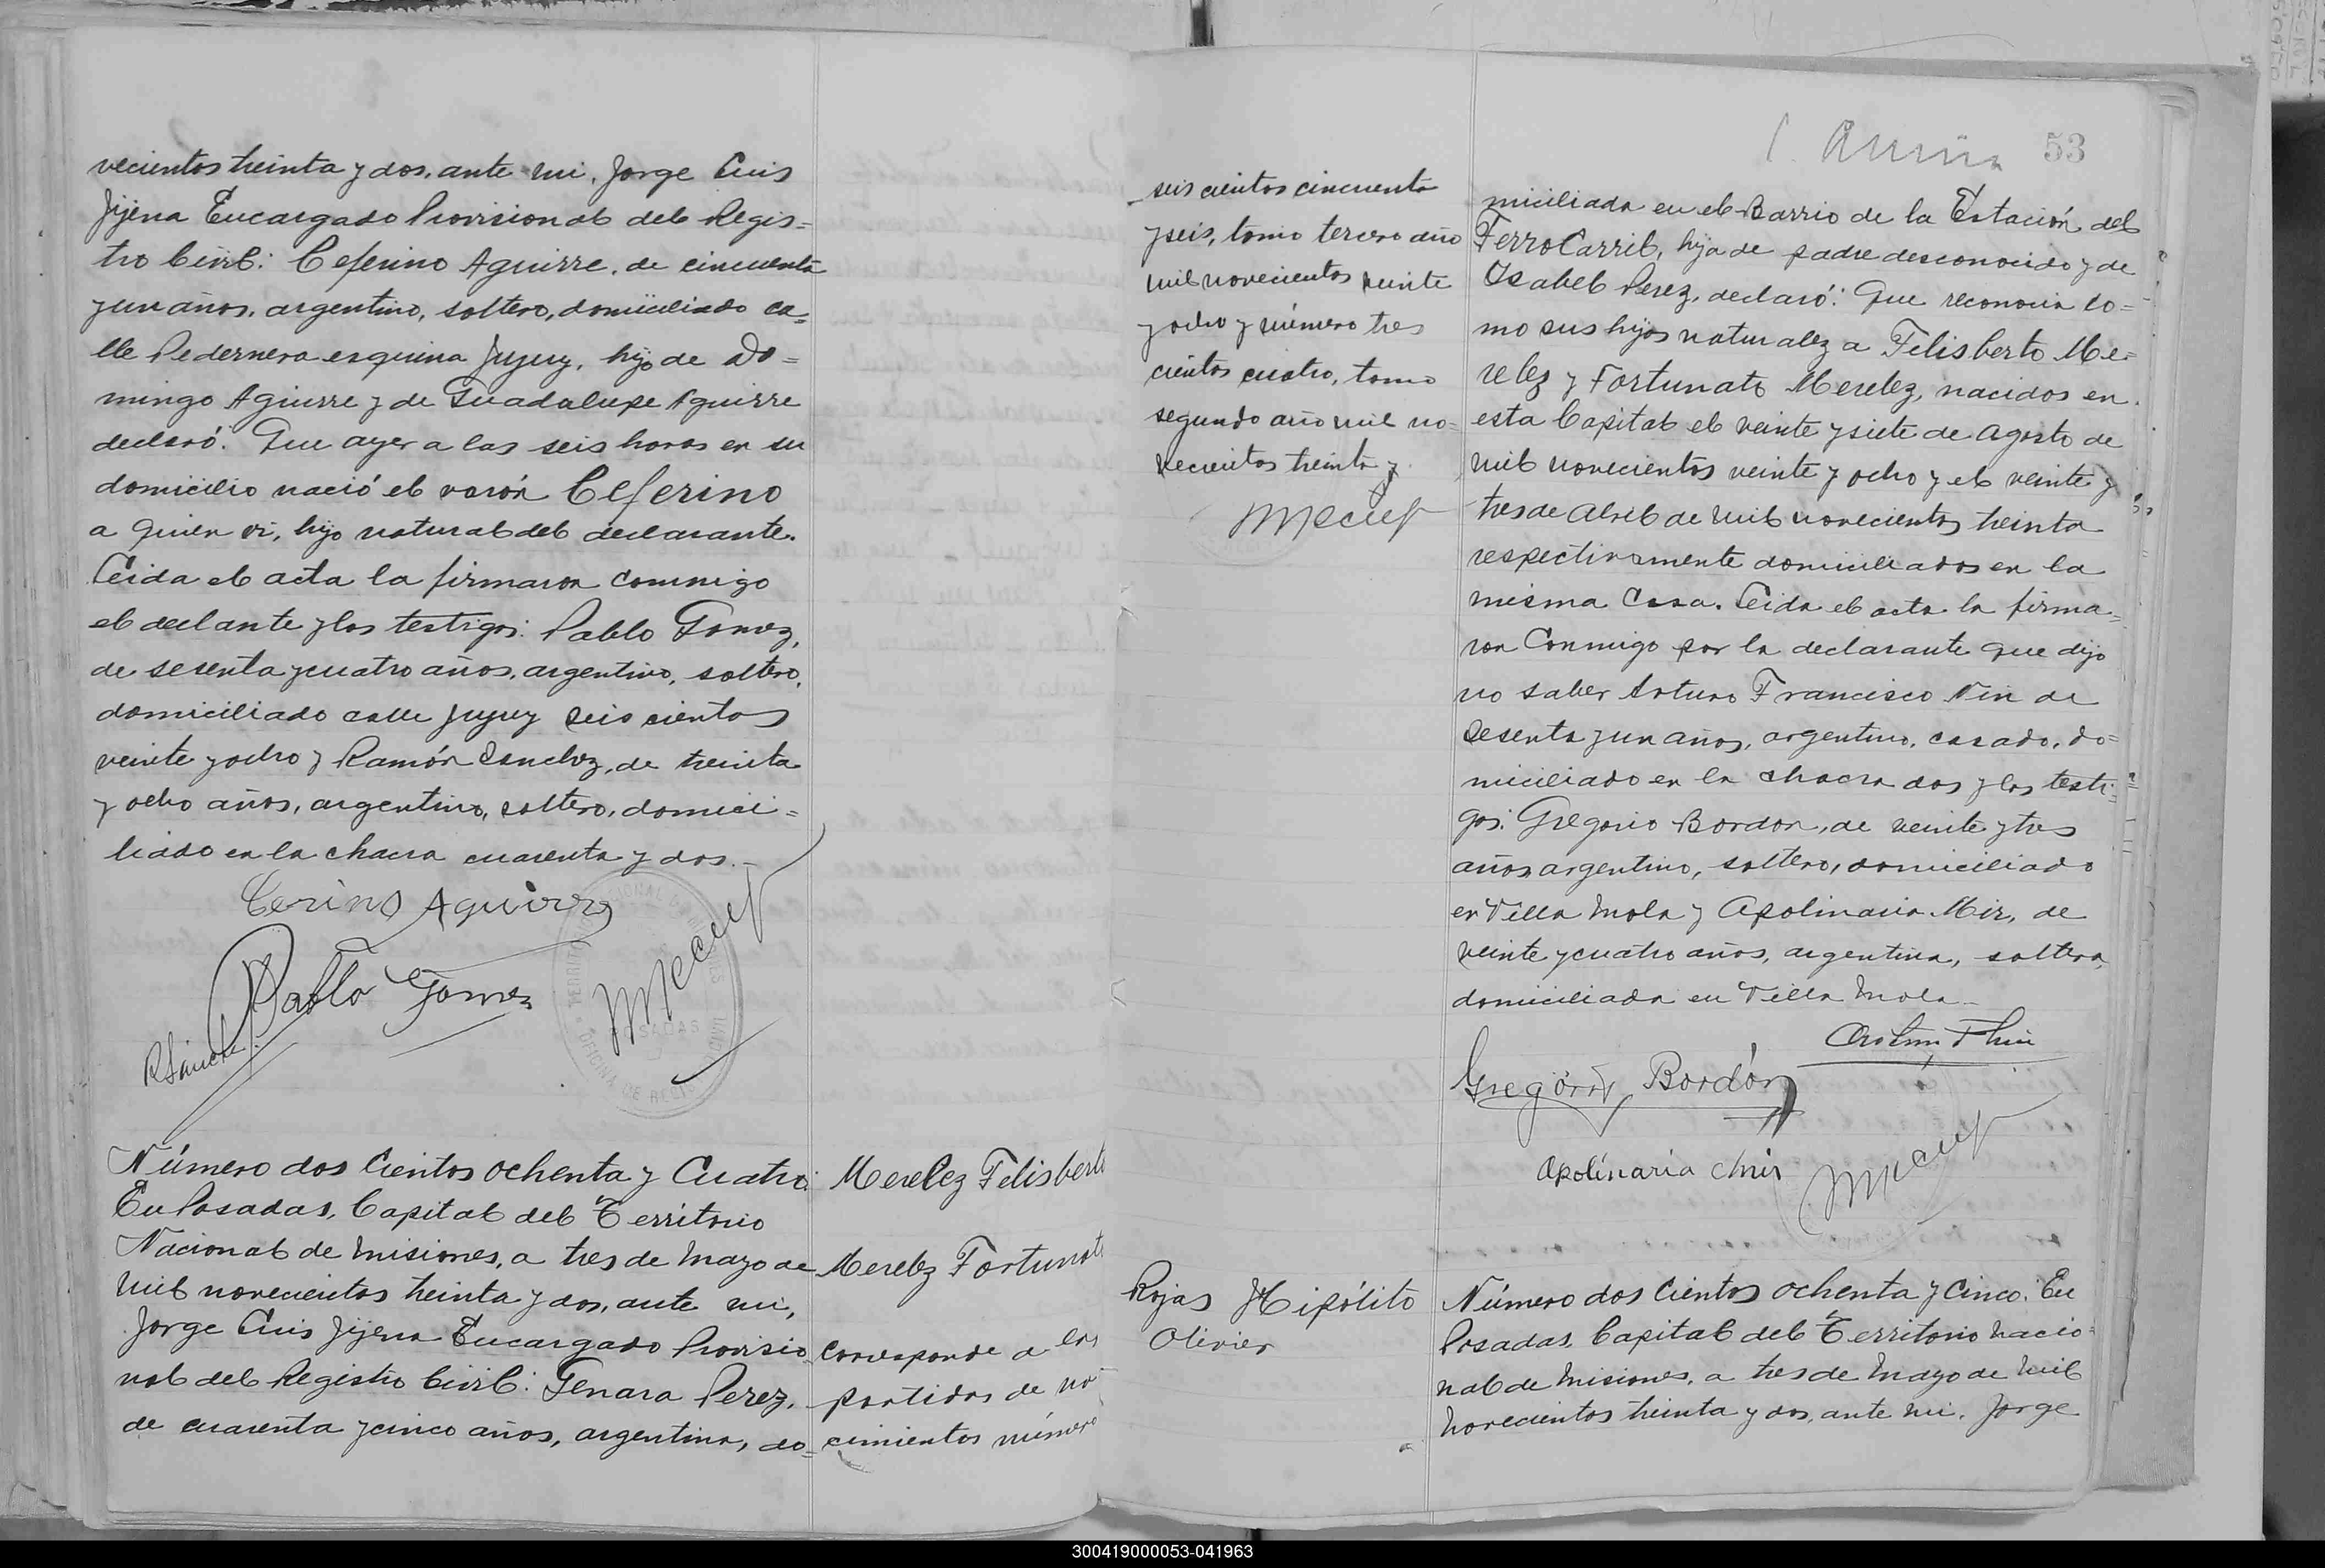 vecientos treinta y dos, ante mi, Jorge Luis
Jijena Encargado Provisional del Regis=
tro Civil: Ceferino Aguirre, de cincuenta
y un años, argentino, soltero, domiciliado ca=
lle Pedernera esquina Jujuy, hijo de Do=
mingo Aguirre y de Guadalupe Aguirre
declaró: Que ayer a las seis horas en su
domicilio nació el varón Ceferino
a quien vi, hijo natural del declarante.
Leida el acta la firmaron conmigo
el declante y los testigos: Pablo Gomez,
de sesenta y cuatro años, argentino, soltero,
domiciliado calle Jujuy seis cientos
veinte y ocho y Ramón Sanchez, de treinta
y ocho años, argentino, soltero, domici=
liado en la chacra cuarenta y dos.-
Cerino Aguirre
Pablo Gomez
RSánchez
POSADAS
Número dos cientos ochenta y cuatro:
En Posadas, Capital del Territorio
Nacional de Misiones, a tres de Mayo de
mil novecientos treinta y dos, ante mi,
Jorge Luis Jijena Encargado Provisio
nal del Registro Civil: Genara Perez,
de cuarenta y cinco años, argentina, do=
Merelez Felisberto
Merelez Fortunato
Corresponde a las
partidas de na
cimientos número
seis cientos cincuenta
y seis, tomo tercero año
mil novecientos veinte
y ocho y número tres
cientos cuatro, tomo
segundo año mil no=
vecientos treinta y
53
miciliada en el Barrio de la Estación del
FerroCarril, hija de padre desconocido y de
Isabel Perez, declaró: Que reconocia co=
mo sus hijos naturalez a Felisberto Me=
relez y Fortunato Merelez, nacidos en
esta Capital el veinte y siete de Agosto de
mil novecientos veinte y ocho y el veinte y
tres de Abril de mil novecientos treinta
respectivamente domiciliados en la
misma Casa. Leida el acta la firma=
ron Conmigo por la declarante que dijo
no saber Arturo Francisco Nin de
sesenta y un años, argentino, casado, do=
miciliado en la chacra dos y los testi=
gos: Gregorio Bordon, de veinte y tres
años argentino, soltero, domiciliado
en Villa Mola y Apolinaria Mir, de
veinte y cuatro años, argentina, soltera,
domiciliada en Villa Mola.-
Gregorio Bordón
Apolinaria Mir
Rojas Hipólito
Olivier
Número dos cientos ochenta y cinco: En
Posadas, Capital del Territorio Nacio=
nal de Misiones, a tres de Mayo de mil
novecientos treinta y dos, ante mi, Jorge
300419000053-041963